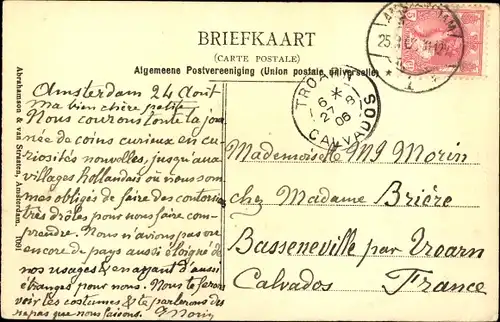 BRIEFKAART
(CARTE POSTALE)
Algemeene Postvereeniging (Union postale universelle)
AMSTERDAM
TROARN
6 *
27 8
06
CALVADOS
Abrahamson & van Straaten, Amsterdam. 1091
Amsterdam 24 Aout
Ma bien chère petite,
Nous courons toute la jour
née de coins curieux en cu
riosités nouvelles, jusqu'aux
villages hollandais où nous som
mes obligés de faire des contorsions
très drôles pour nous faire com
prendre. Nous n'avions pas vu
encore de pays aussi éloigné de
nos usages & en ayant d'aussi
étranges pour nous. Nous te ferons
voir les costumes & te parlerons des
repas que nous faisons. Morin
Mademoiselle M Morin
chez Madame Brière
Basseneville par Troarn
Calvados France